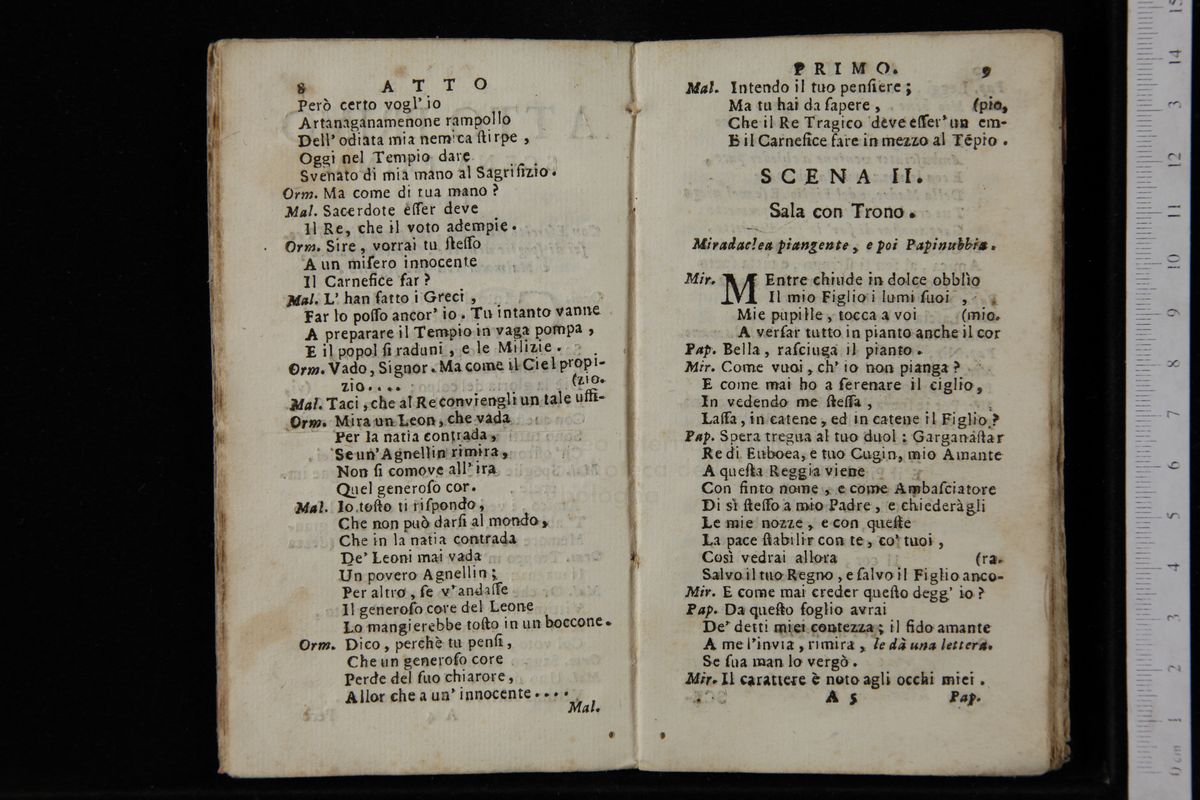 8 ATTO
Però certo vogl' io
Artanaganamenone rampollo
Dell' odiata mia nemica ſtirpe ,
Oggi nel Tempio dare
Svenato di mia mano al Sagrifizio.
Orm. Ma come di tua mano ?
Mal. Sacerdote eſſer deve
Il Re, che il voto adempie.
Orm. Sire , vorrai tu ſteſſo
A un miſero innocente
Il Carnefice far ?
Mal. L' han fatto i Greci ,
Far lo poſſo ancor' io . Tu intanto vanne
A preparare il Tempio in vaga pompa ,
E il popol ſi raduni , e le Milizie .
Orm. Vado, Signor. Ma come il Ciel propi-
zio.... (zio.
Mal. Taci, che al Re conviengli un tale uffi-
Orm. Mira un Leon, che vada
Per la natia contrada,
Se un' Agnellin rimira,
Non ſi comove all' ira
Quel generoſo cor.
Mal. Io toſto ti riſpondo,
Che non può darſi al mondo,
Che in la natia contrada
De' Leoni mai vada
Un povero Agnellin ;
Per altro , ſe v'andaſſe
Il generoſo core del Leone
Lo mangierebbe toſto in un boccone.
Orm. Dico, perchè tu penſi,
Che un generoſo core
Perde del ſuo chiarore,
Allor che a un' innocente ....
Mal.
PRIMO. 9
Mal. Intendo il tuo penſiere ;
Ma tu hai da ſapere , (pio,
Che il Re Tragico deve eſſer' un em-
E il Carnefice fare in mezzo al Tẽpio .
SCENA II.
Sala con Trono.
Miradaclea piangente, e poi Papinubbia.
Mir. MEntre chiude in dolce obblìo
Il mio Figlio i lumi ſuoi ,
Mie pupille , tocca a voi (mio.
A verſar tutto in pianto anche il cor
Pap. Bella , raſciuga il pianto .
Mir. Come vuoi, ch' io non pianga ?
E come mai ho a ſerenare il ciglio,
In vedendo me ſteſſa ,
Laſſa, in catene, ed in catene il Figlio ?
Pap. Spera tregua al tuo duol : Garganaſtar
Re di Euboea, e tuo Cugin, mio Amante
A queſta Reggia viene
Con finto nome , e come Ambaſciatore
Di sì ſteſſo a mio Padre , e chiederàgli
Le mie nozze , e con queſte
La pace ſtabilir con te, co' tuoi ,
Così vedrai allora (ra.
Salvo il tuo Regno , e ſalvo il Figlio anco-
Mir. E come mai creder queſto degg' io ?
Pap. Da queſto foglio avrai
De' detti miei contezza ; il fido amante
A me l'invia , rimira , le dà una lettera.
Se ſua man lo vergò .
Mir. Il carattere è noto agli occhi miei .
A 5 Pap.